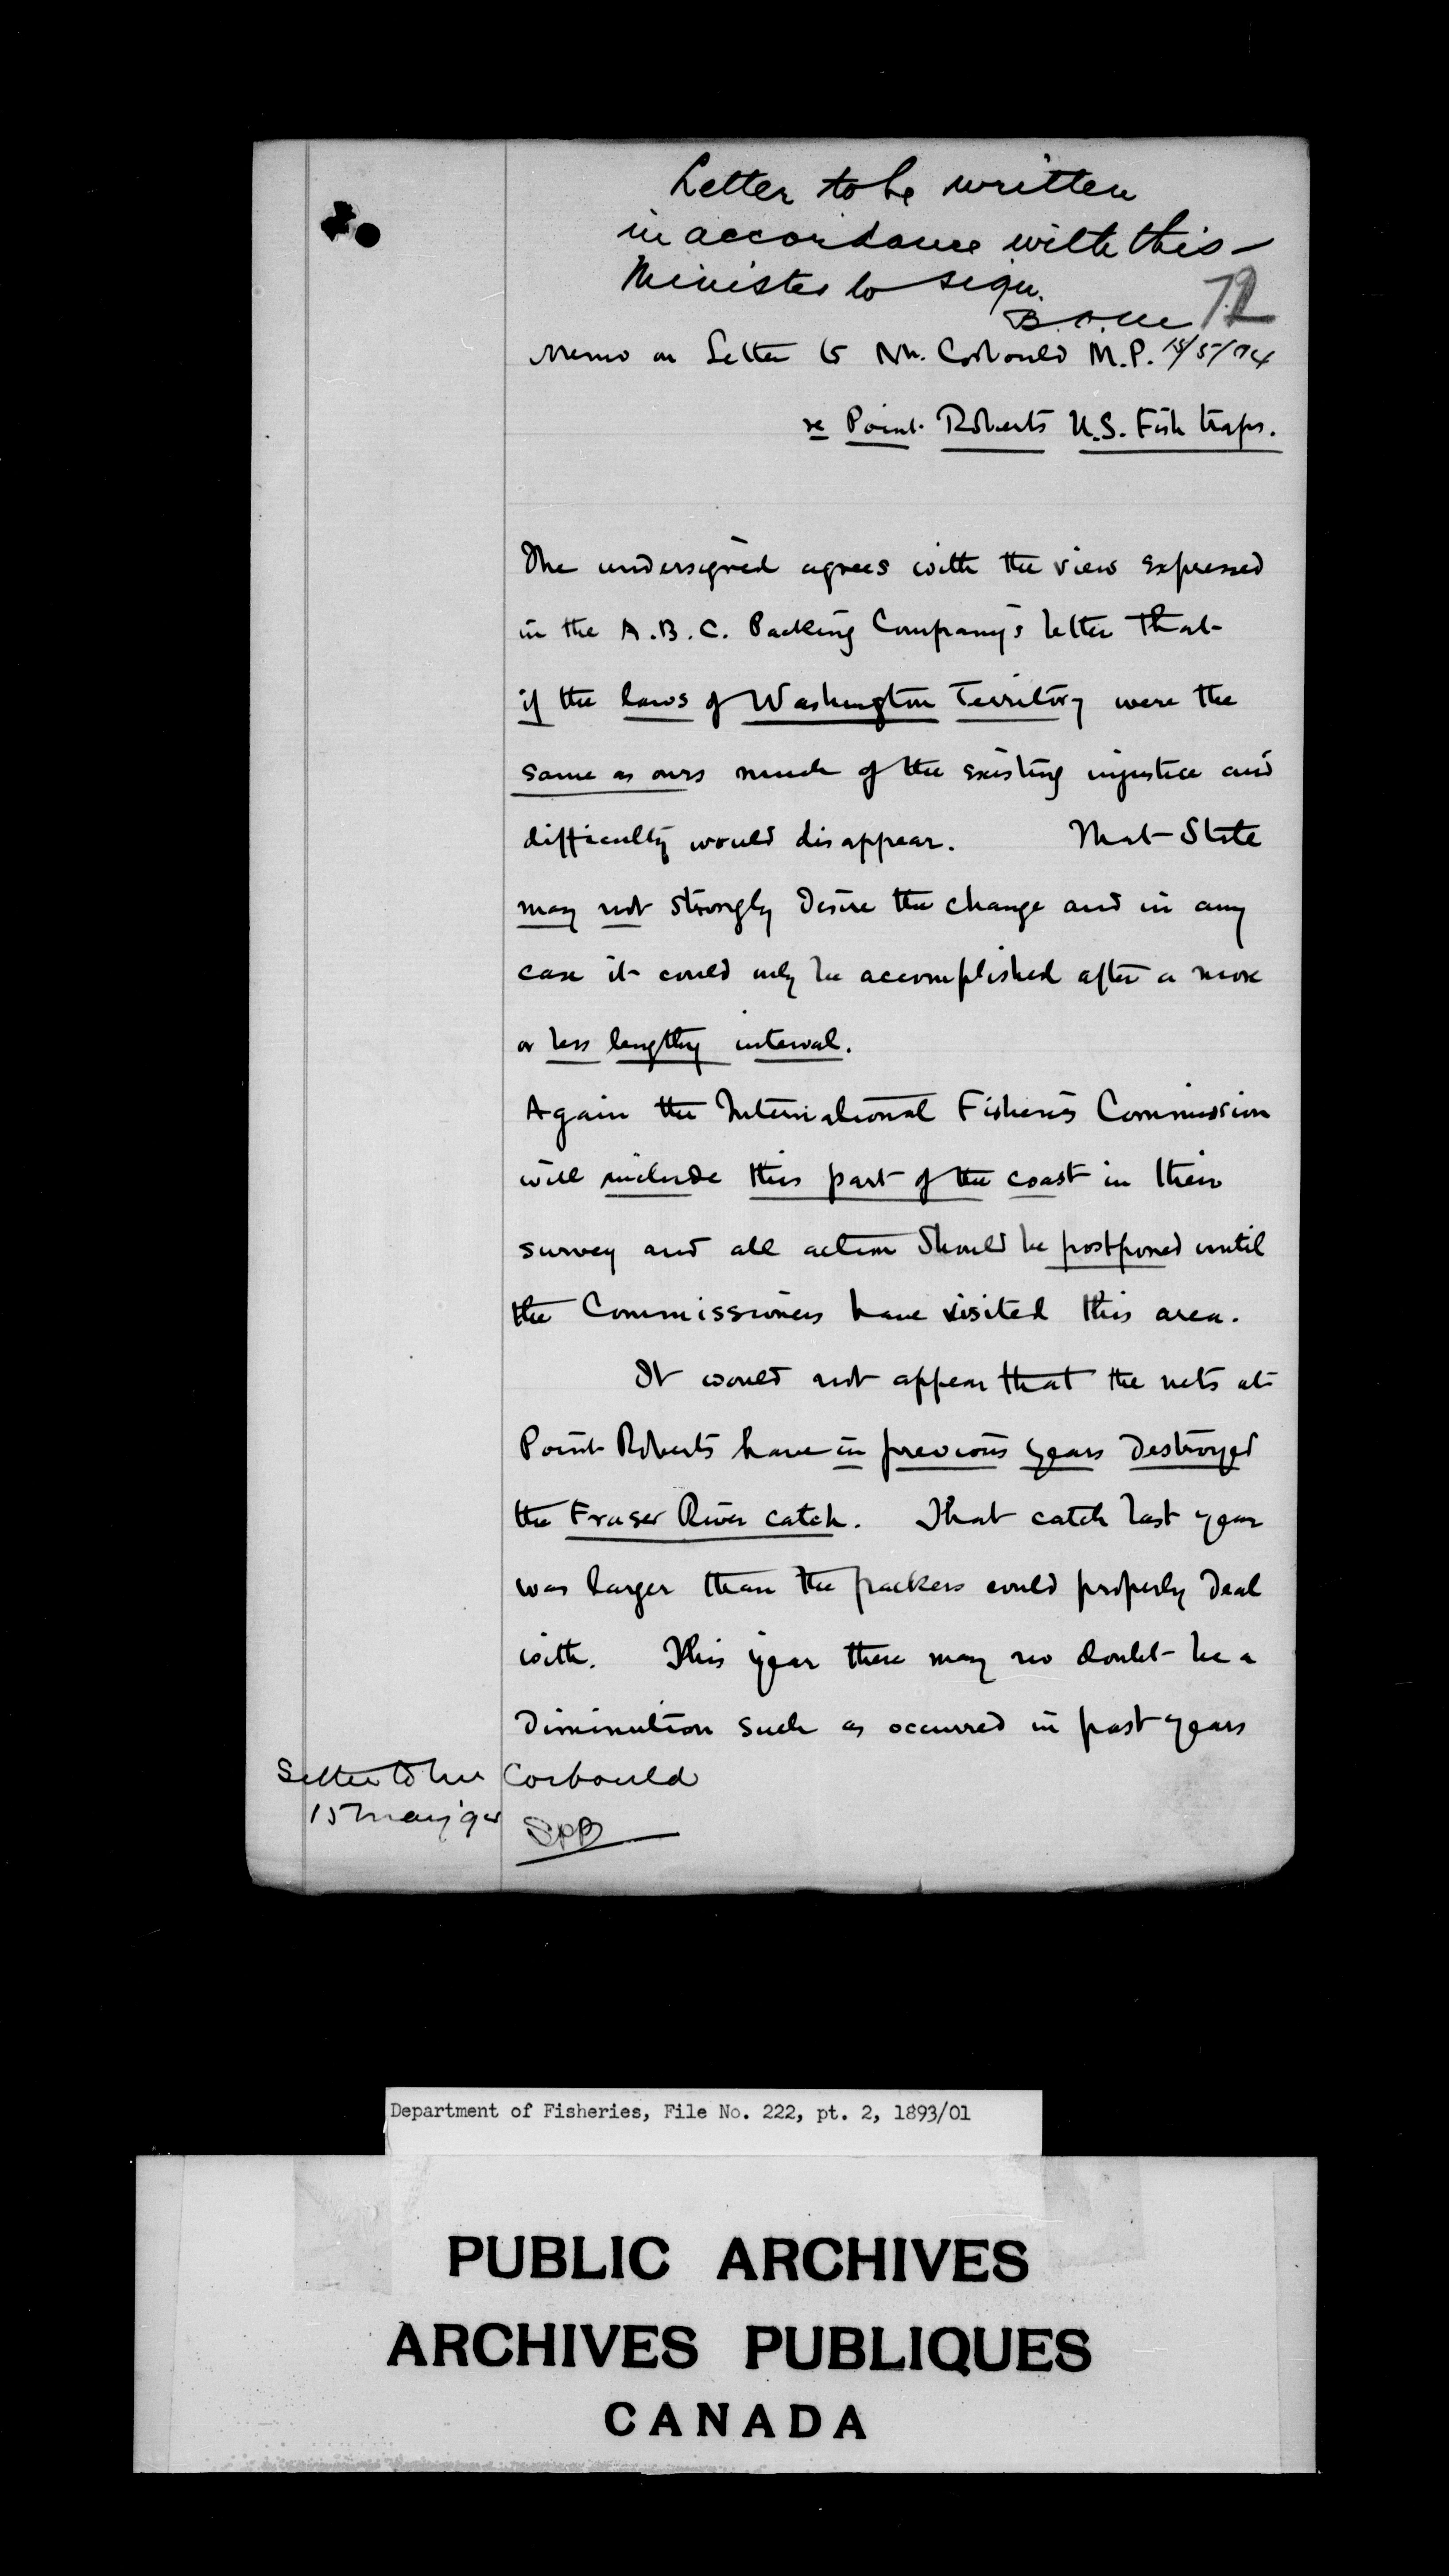 Letter to be written
in accordance with this -
Minister to sign.
72
Memo on Letter to Mr. Corbould M.P. 15/5/94
re Point Roberts U.S. Fish traps.
The undersigned agrees with the view expressed
in the A.B.C. Packing Company's letter that
if the laws of Washington Territory were the
same as ours much of the existing injustice and
difficulty would disappear. That State
may not strongly desire the change and in any
case it could only be accomplished after a more
or less lengthy interval.
Again the International Fisheries Commission
will include this part of the coast in their
survey and all action should be postponed until
the Commissioners have visited this area.
It would not appear that the nets at
Point Roberts have in previous years destroyed
the Fraser River catch. That catch last year
was larger than the packers could properly deal
with. This year there may no doubt be a
diminution such as occurred in past years
Letter to Mr Corbould
15 May '94
Department of Fisheries, File No. 222, pt. 2, 1893/01
PUBLIC ARCHIVES
ARCHIVES PUBLIQUES
CANADA